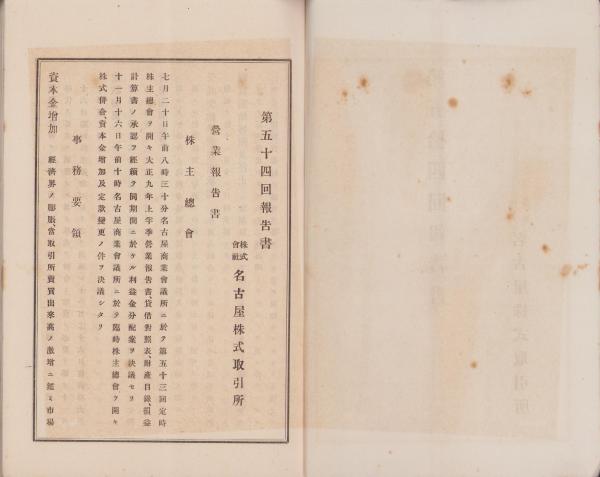 第五十四回報告書
株式會社 名古屋株式取引所
營業報告書
株主總會
七月二十日午前八時三十分名古屋商業會議所ニ於テ第五十三回定時
株主總會ヲ開キ大正九年上半季營業報告書、貸借對照表、財產目錄、損益
計算書ノ承認ヲ經續テ同期間ニ於ケル利益金分配案ヲ決議セリ
十一月十六日午前十時名古屋商業會議所ニ於テ臨時株主總會ヲ開キ
株式併合、資本金增加及定款變更ノ件ヲ決議シタリ
事務要領
資本金增加 經濟界ノ膨脹、當取引所賣買出來高ノ激增ニ鑑ミ市場